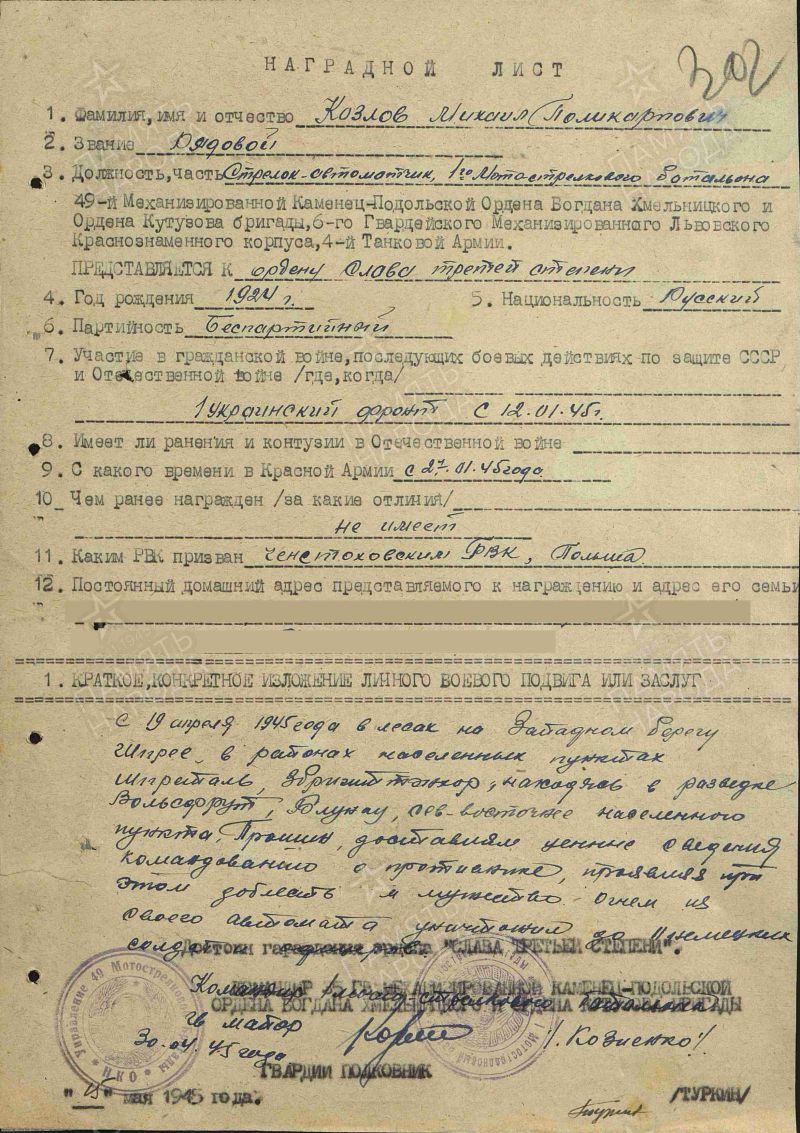 302
НАГРАДНОЙ ЛИСТ
1. Фамилия, имя и отчество Козлов Михаил Поликарпович
2. Звание Рядовой
3. Должность, часть Стрелок-автоматчик, 1го Мотострелкового батальона
49-й Механизированной Каменец-Подольской Ордена Богдана Хмельницкого и
Ордена Кутузова бригады, 6-го Гвардейского Механизированного Львовского
Краснознаменного корпуса, 4-й Танковой Армии.
ПРЕДСТАВЛЯЕТСЯ К ордену Слава третей степени
4. Год рождения 1924 г. 5. Национальность Русский
6. Партийность Беспартийный
7. Участие в гражданской войне, последующих боевых действиях по защите СССР
и Отечественной войне /где, когда/
1 Украинский фронт с 12.01.45г.
8. Имеет ли ранения и контузии в Отечественной войне
9. С какого времени в Красной Армии с 27.01.45 года
10. Чем ранее награжден /за какие отличия/
не имеет
11. Каким РВК призван Ченстоховским РВК, Польша
12. Постоянный домашний адрес представляемого к награждению и адрес его семьи
1. КРАТКОЕ, КОНКРЕТНОЕ ИЗЛОЖЕНИЕ ЛИЧНОГО БОЕВОГО ПОДВИГА ИЛИ ЗАСЛУГ
С 19 апреля 1945 года в лесах на Западном берегу
Шпрее, в районах населенных пунктах
Шпреталь, находясь в разведке
сев-восточнее населенного
пункта, доставлял ценные сведения
командованию о противнике, проявляя при
этом доблесть и мужество. Огнем из
своего автомата уничтожил до 11 немецких
солдат
Достоин награждения ордена "СЛАВА ТРЕТЬЕЙ СТЕПЕНИ".
Командир 1 Мото-стрелкового батальона
КОМАНДИР 49 ГВ. МЕХАНИЗИРОВАННОЙ КАМЕНЕЦ-ПОДОЛЬСКОЙ
ОРДЕНА БОГДАНА ХМЕЛЬНИЦКОГО И ОРДЕНА КУТУЗОВА БРИГАДЫ
гв майор /Козиенко/
30.04.45 года
ГВАРДИИ ПОЛКОВНИК
"15" мая 1945 года. /ТУРКИН/
Управление 49 Мотострелковой
НКО